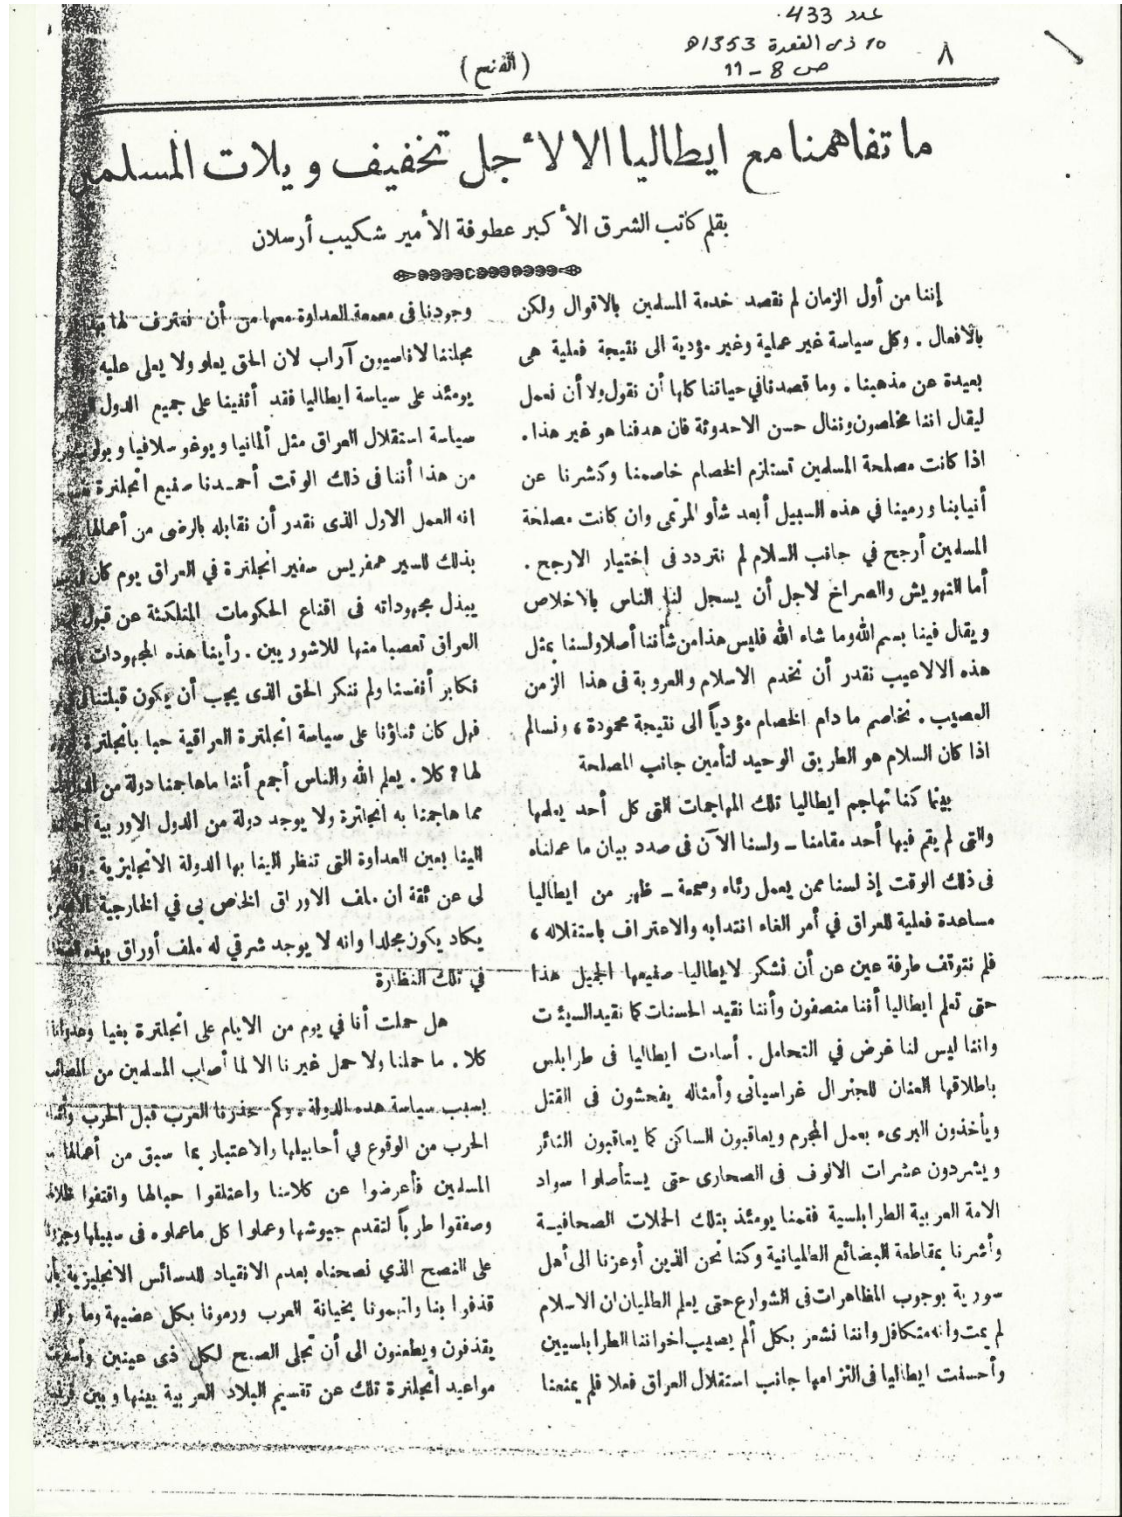 عدد 433
١٥ ذي القعدة 1353هـ
ص 8 - 11
٨
( الفتح )
ما تفاهمنا مع ايطاليا الا لأجل تخفيف ويلات المسلمين
بقلم كاتب الشرق الأكبر عطوفة الأمير شكيب أرسلان
إننا من أول الزمان لم نقصد خدمة المسلمين بالاقوال ولكن
بالافعال . وكل سياسة غير عملية وغير مؤدية الى نتيجة فعلية هى
بعيدة عن مذهبنا . وما قصدنا في حياتنا كلها أن نقول ولا أن نعمل
ليقال اننا مخلصون وننال حسن الاحدوثة فان هدفنا هو غير هذا .
اذا كانت مصلحة المسلمين تستلزم الخصام خاصمنا وكشرنا عن
أنيابنا ورمينا في هذه السبيل أبعد شأو المرمى وان كانت مصلحة
المسلمين أرجح في جانب السلام لم نتردد فى اختيار الارجح .
أما التهويش والصراخ لاجل أن يسجل لنا الناس بالاخلاص
ويقال فينا بسم الله وما شاء الله فليس هذا من شأننا أصلا ولسنا بمثل
هذه الالاعيب نقدر أن نخدم الاسلام والعروبة فى هذا الزمن
العصيب . نخاصم ما دام الخصام مؤدياً الى نتيجة محمودة ، ونسالم
اذا كان السلام هو الطريق الوحيد لتأمين جانب المصلحة
بينما كنا نهاجم ايطاليا تلك المهاجمات التى كل أحد يعلمها
والتى لم يقم فيها أحد مقامنا ــ ولسنا الآن فى صدد بيان ما عملناه
فى ذلك الوقت إذ لسنا ممن يعمل رئاء وسمعة ــ ظهر من ايطاليا
مساعدة فعلية للعراق في أمر الغاء انتدابه والاعتراف باستقلاله ،
فلم نتوقف طرفة عين عن أن نشكر لايطاليا صنيعها الجميل هذا
حتى تعلم ايطاليا أننا منصفون وأننا نقيد الحسنات كما نقيد السيئات
واننا ليس لنا غرض في التحامل . أساءت ايطاليا فى طرابلس
باطلاقها العنان للجنرال غراسيانى وأمثاله يفحشون فى القتل
ويأخذون البرىء بعمل المجرم ويعاقبون الساكن كما يعاقبون الثائر
ويشردون عشرات الالوف فى الصحارى حتى يستأصلوا سواد
الامة العربية الطرابلسية فقمنا يومئذ بتلك الحملات الصحافية
وأشرنا بمقاطعة البضائع الطليانية وكنا نحن الذين أوعزنا الى أهل
سورية بوجوب المظاهرات فى الشوارع حتى يعلم الطليان ان الاسلام
لم يمت وانه متكافل واننا نشعر بكل ألم يصيب اخواننا الطرابلسيين
وأحسنت ايطاليا فى التزامها جانب استقلال العراق فعلا فلم يمنعنا
وجودنا فى معمعة العداوة معها من أن نعترف لها
مجلتنا لاناسيون آراب لان الحق يعلو ولا يعلى عليه
يومئذ على سياسة ايطاليا فقد أثنينا على جميع الدول
سياسة استقلال العراق مثل ألمانيا ويوغوسلافيا
من هذا أننا فى ذلك الوقت أحمدنا صنيع انجلترة
انه العمل الاول الذى نقدر أن نقابله بالرضى من أعمالها
بذلك للسير همفريس سفير انجلترة في العراق يوم كان
يبذل مجهوداته فى اقناع الحكومات المتلكئة عن قبول
العراق تعصبا منها للاشوريين . رأينا هذه المجهودات
نكابر أنفسنا ولم ننكر الحق الذى يجب أن يكون قبلتنا
فهل كان ثناؤنا على سياسة انجلترة العراقية حبا بانجلترة
لها ؟ كلا . يعلم الله والناس أجمع أننا ما هاجمنا دولة من
مما هاجمنا به انجلترة ولا يوجد دولة من الدول الاوربية
الينا بعين العداوة التى تنظر الينا بها الدولة الانجليزية
لى عن ثقة ان ملف الاوراق الخاص بى في الخارجية
يكاد يكون مجلدا وانه لا يوجد شرقي له ملف أوراق بهذه
في تلك النظارة
هل حملت أنا في يوم من الايام على انجلترة بغيا وعدوانا
كلا . ما حملنا ولا حمل غيرنا الا لما أصاب المسلمين من المصائب
بسبب سياسة هذه الدولة . وكم حذرنا العرب قبل الحرب
الحرب من الوقوع في أحابيلها والاعتبار بما سبق من أعمالها
المسلمين فأعرضوا عن كلامنا واعتلقوا حبالها واقتفوا
وصفقوا طرباً لتقدم جيوشها وعملوا كل ما عملوه فى سبيلها
على النصح الذي نصحناه بعدم الانقياد للدسائس الانجليزية بأن
قذفوا بنا واتهمونا بخيانة العرب ورمونا بكل عضيهة وما
يقذفون ويطعنون الى أن تجلى الصبح لكل ذى عينين
مواعيد انجلترة تلك عن تقسيم البلاد العربية بينها وبين